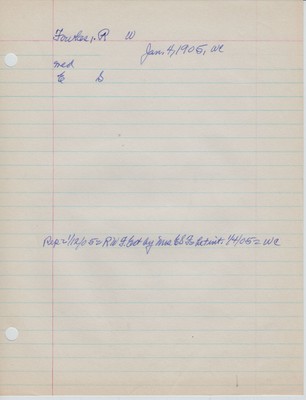 Fowlkes, R W
Jan. 4, 1905, WC
Fred
E S
Rep 1/12/05 = R W F. Est by Mrs E S F. 1/4/05 = WC